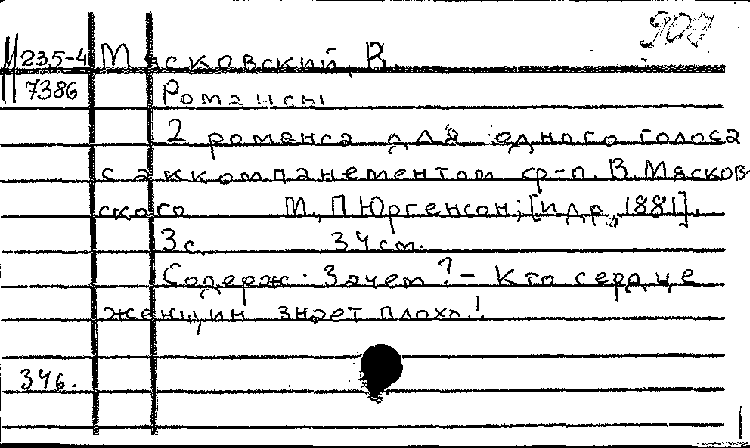 909
М 235-4 Мясковский, В.
7386 Романсы
2 романса для одного голоса
с аккомпанементом ф-п. В. Мясков-
ского М., П. Юргенсон, [и др., 1881].
3 с. 34 см.
Содерж.: Зачем? – Кто сердце
женщин знает плохо!
346.